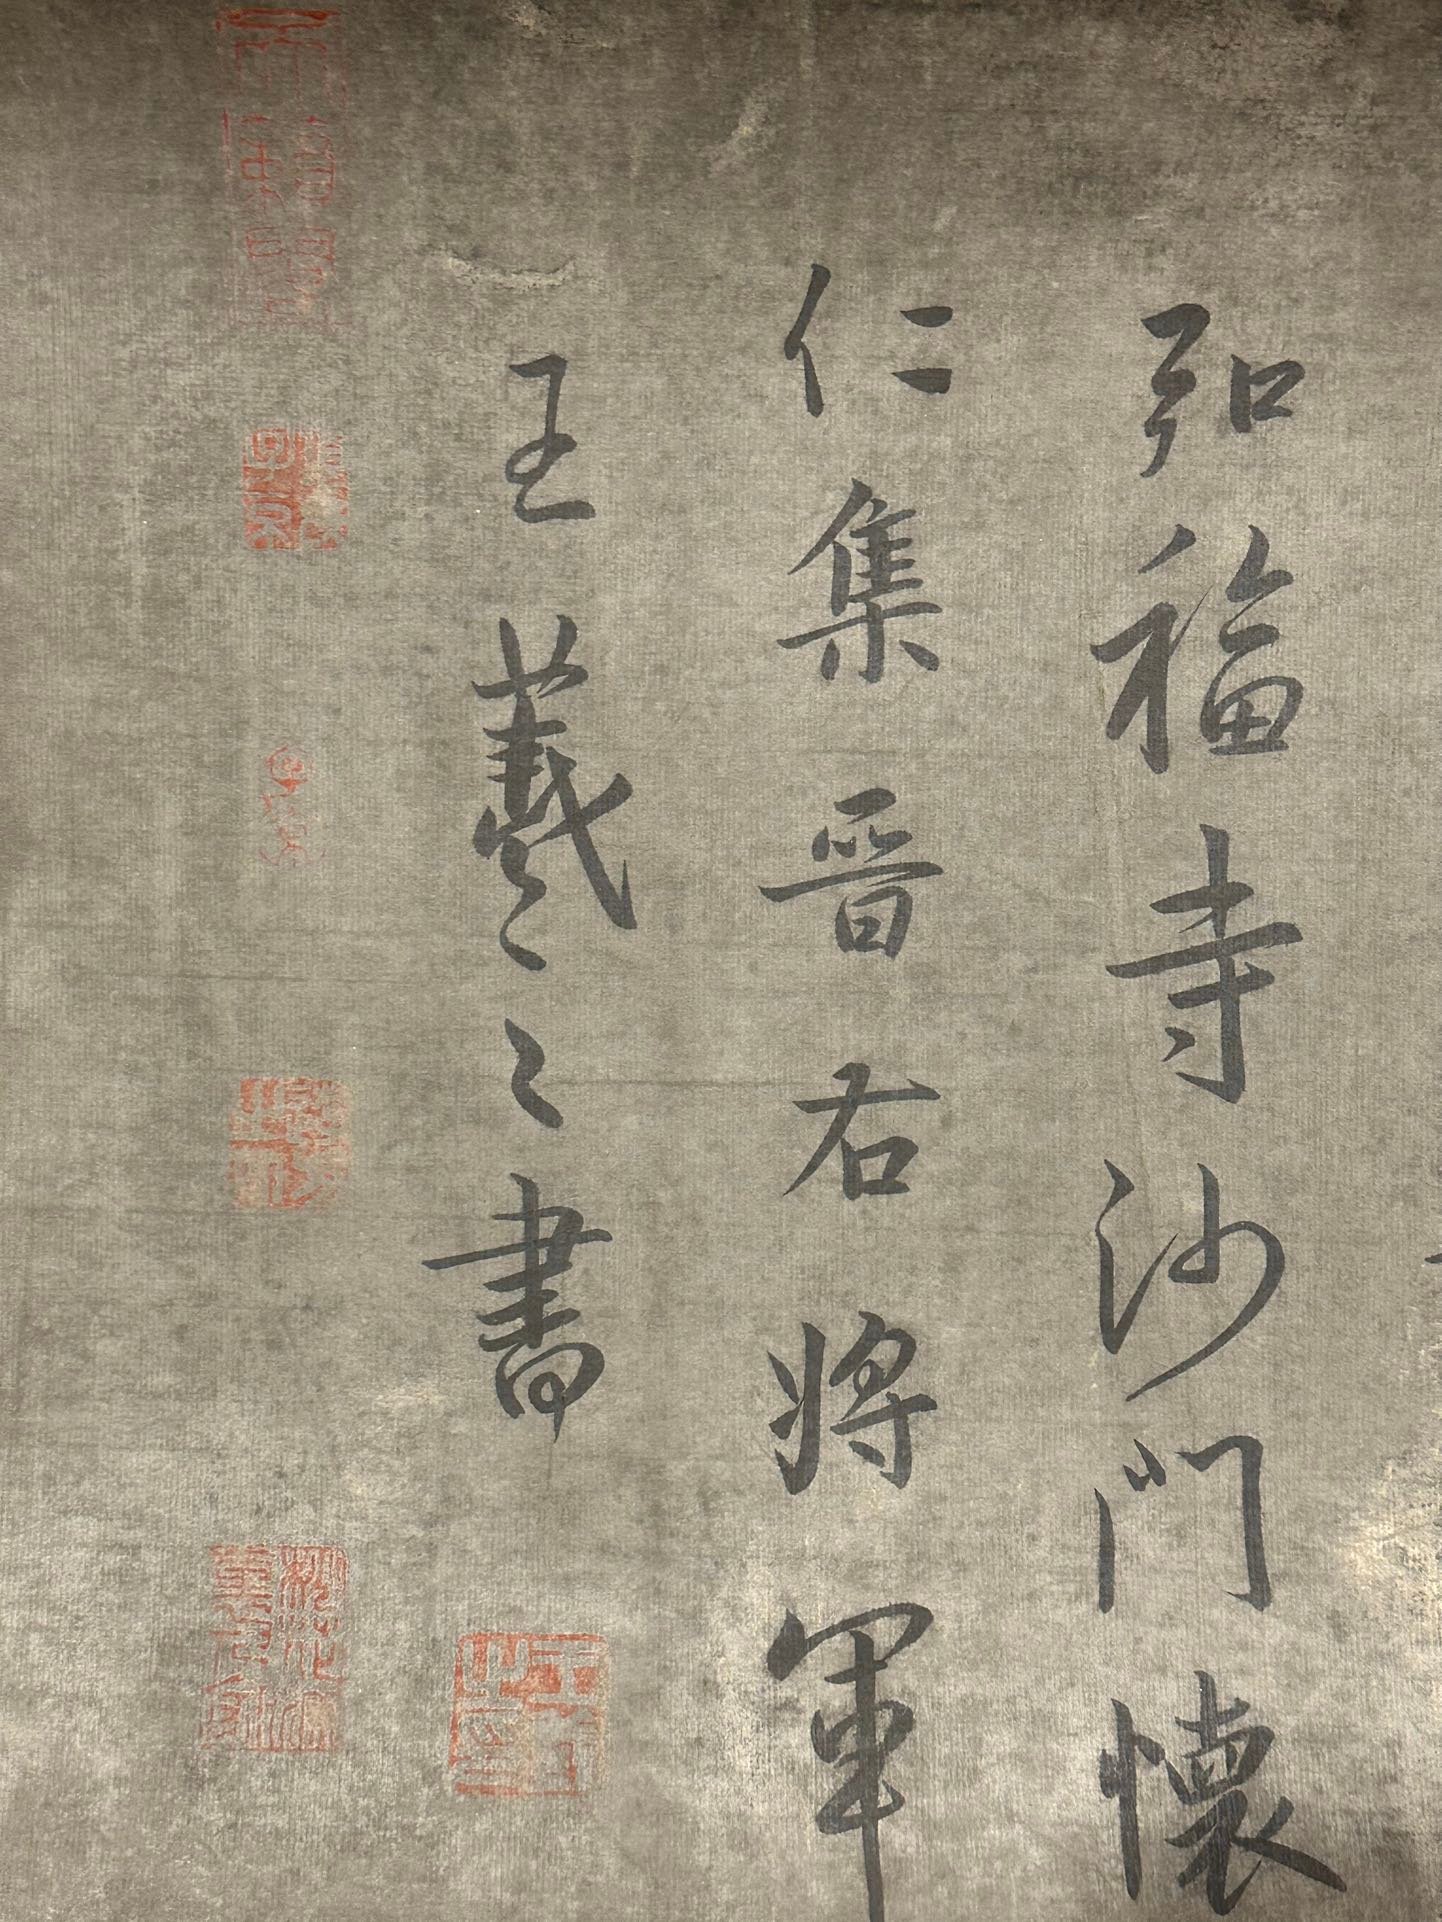 弘福寺沙門懷
仁集晉右將軍
王羲之書